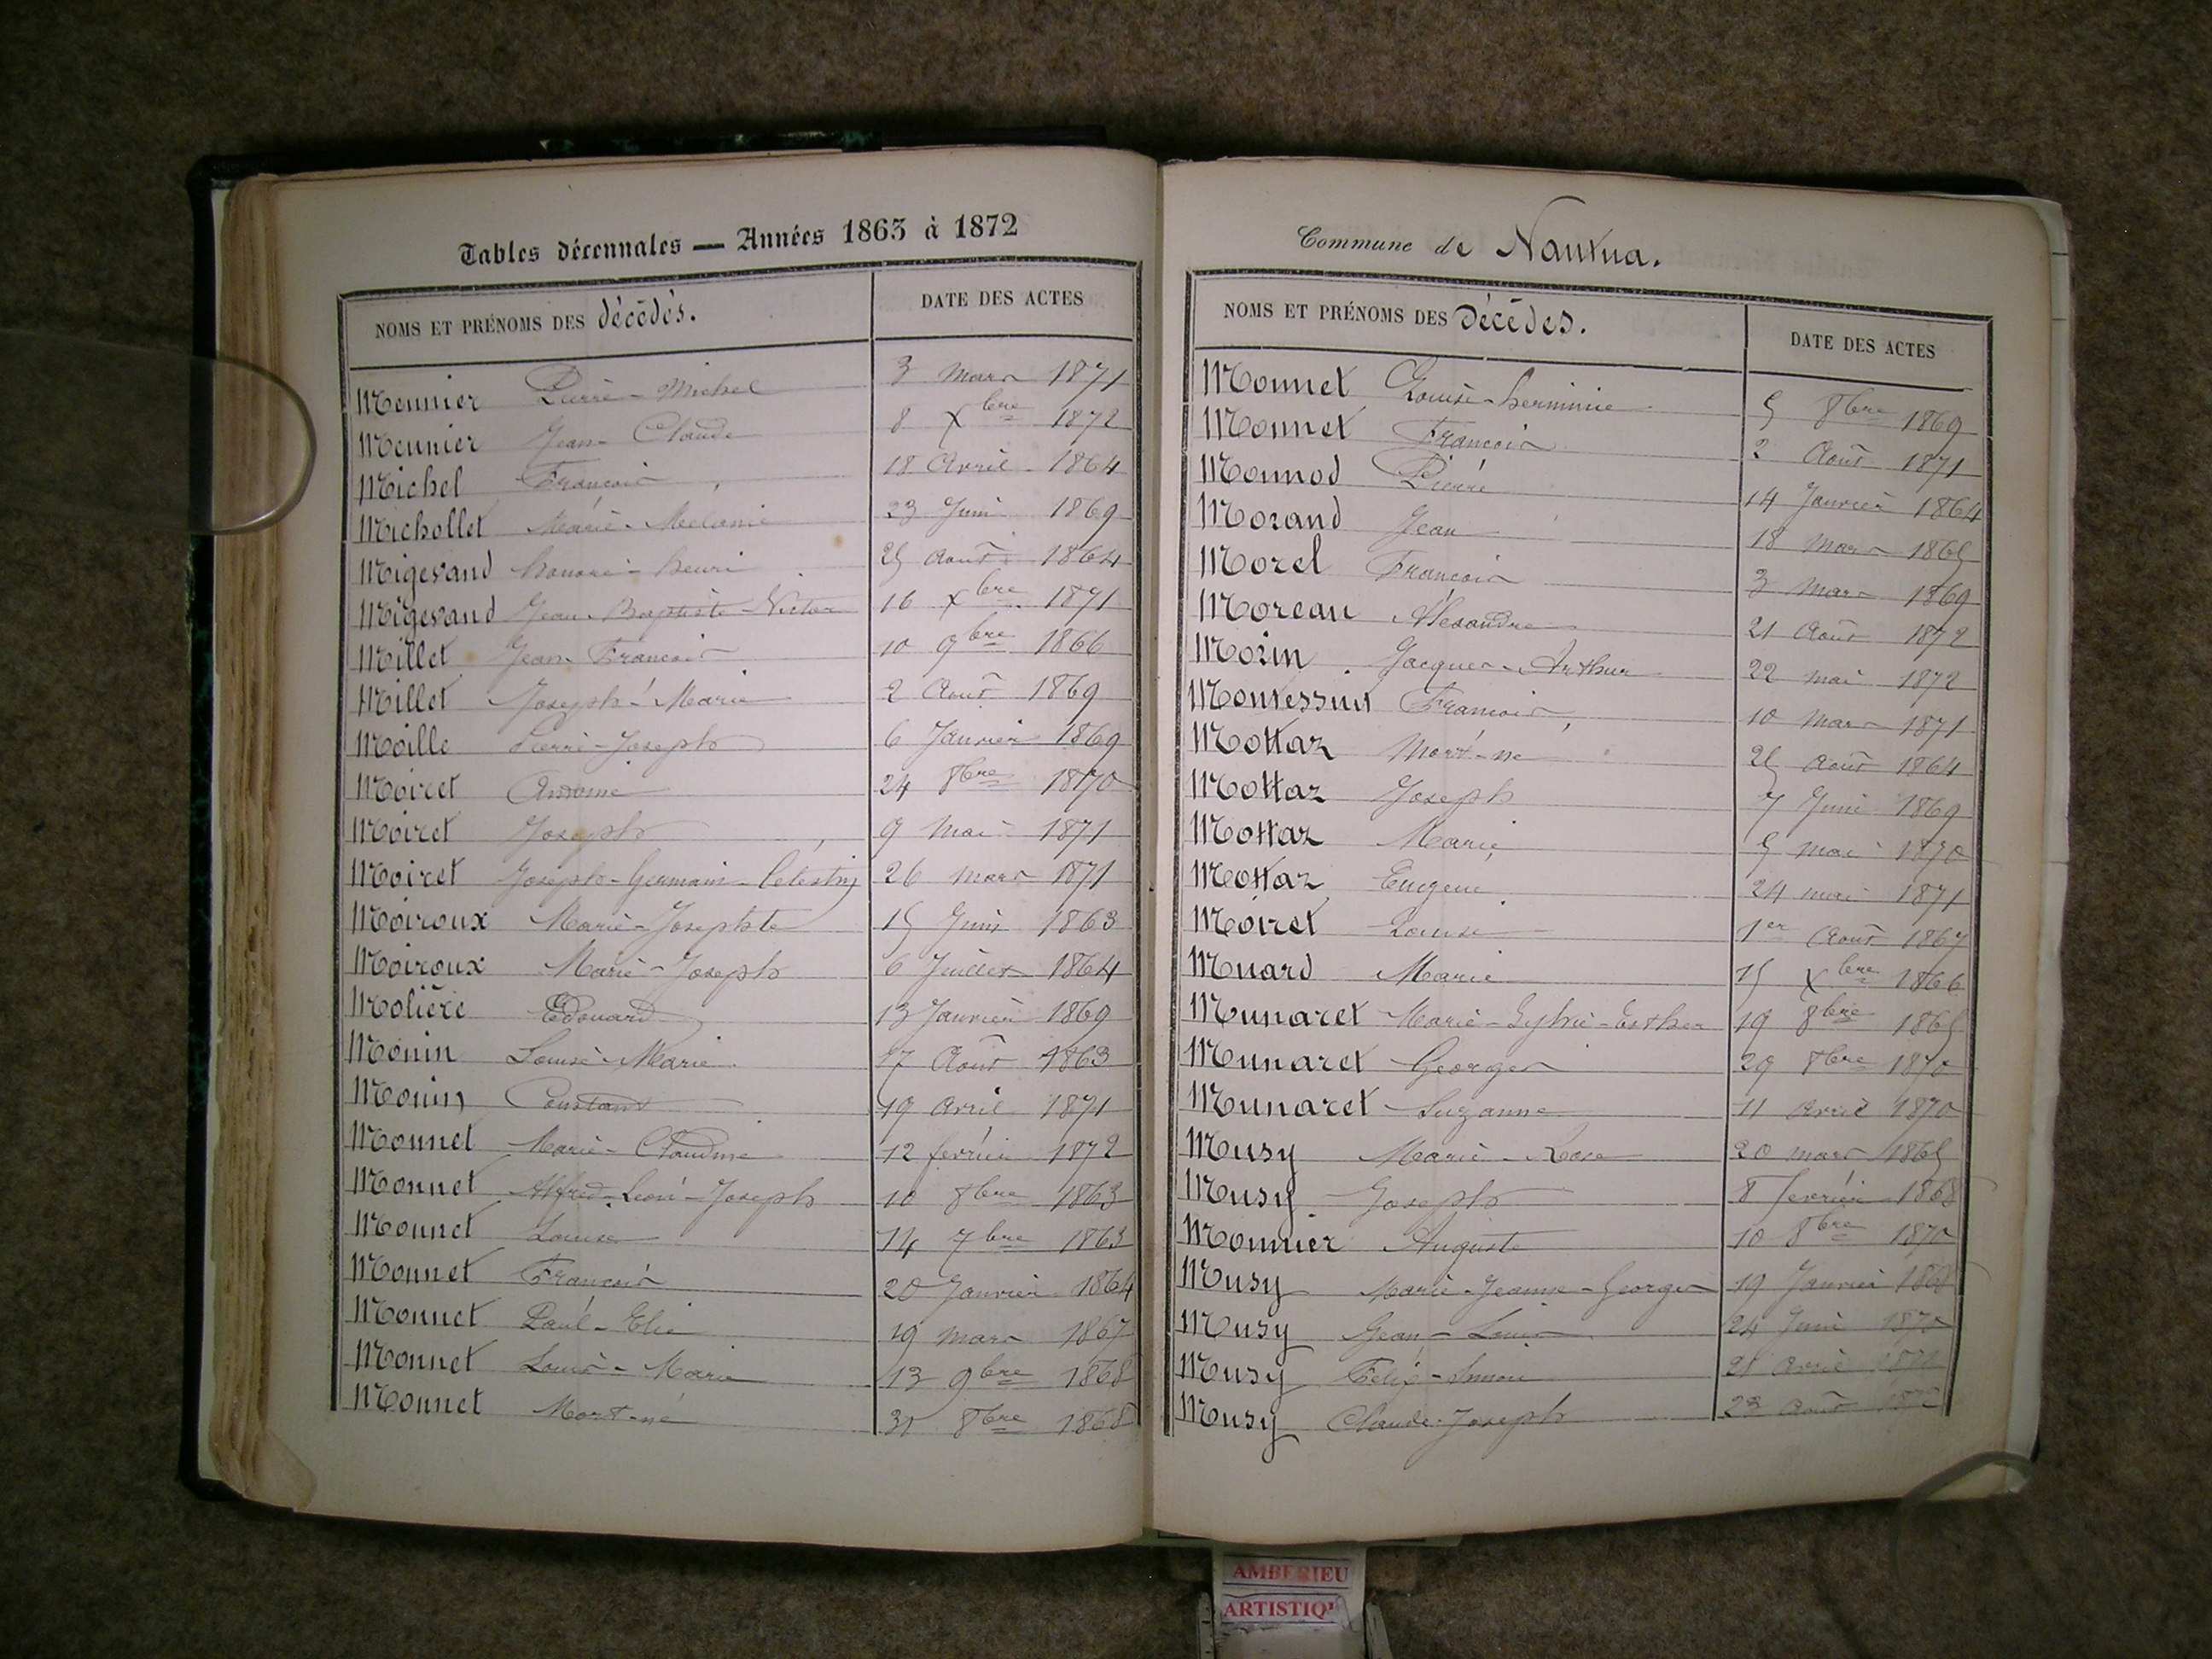 Tables décennales — Années 1863 à 1872
NOMS ET PRÉNOMS DES décédés. DATE DES ACTES
Meunier Pierre-Michel 3 Mars 1871
Meunier Jean-Claude 8 Xbre 1872
Michel François 18 Avril 1864
Michollet Marie-Mélanie 23 Juin 1869
Migerand honoré-henri 25 Août 1864
Migerand Jean-Baptiste-Victor 16 Xbre 1871
Millet Jean-François 10 9bre 1866
Millet Joseph-Marie 2 Août 1869
Moille Pierre-Joseph 6 Janvier 1869
Moiret Antoine 24 8bre 1870
Moiret Joseph 9 Mai 1871
Moiret Joseph-Germain-Célestin 26 Mars 1871
Moiroux Marie-Josephte 15 Juin 1863
Moiroux Marie-Joseph 6 Juillet 1864
Molière Edouard 13 Janvier 1869
Monin Louise-Marie 17 Août 1863
Monin Constant 19 Avril 1871
Monnet Marie-Claudine 12 février 1872
Monnet Alfred-Léon-Joseph 10 8bre 1863
Monnet Louise 14 7bre 1863
Monnet François 20 Janvier 1864
Monnet Paul-Elie 19 Mars 1867
Monnet Louis-Marie 13 9bre 1868
Monnet Mort-né 31 8bre 1868
Commune de Nantua.
NOMS ET PRÉNOMS DES Décédés. DATE DES ACTES
Monnet Louise-herminie 5 8bre 1869
Monnet François 2 Août 1871
Monnod Pierre 14 Janvier 1864
Morand Jean 18 Mars 1865
Morel François 3 Mars 1869
Moreau Alexandre 21 Août 1872
Morin Jacques-Arthur 22 mai 1872
Montessuit François 10 Mars 1871
Mottaz Mort-né 25 Août 1864
Mottaz Joseph 7 Juin 1869
Mottaz Marie 5 mai 1870
Mottaz Eugène 24 mai 1871
Moiret Louise 1er Août 1867
Muard Marie 15 Xbre 1866
Munaret Marie-Sylvie-Esther 19 8bre 1865
Munaret Georges 29 8bre 1870
Munaret Suzanne 11 Avril 1870
Musy Marie-Rose 20 mars 1865
Musy Joseph 8 février 1868
Monnier Auguste 10 8bre 1870
Musy Marie-Jeanne-Georges 19 Janvier 1868
Musy Jean-Louis 24 Juin 1870
Musy Félix-Simon Avril
Musy Claude-Joseph 23 Août 1872
AMBERIEU
ARTISTIQ